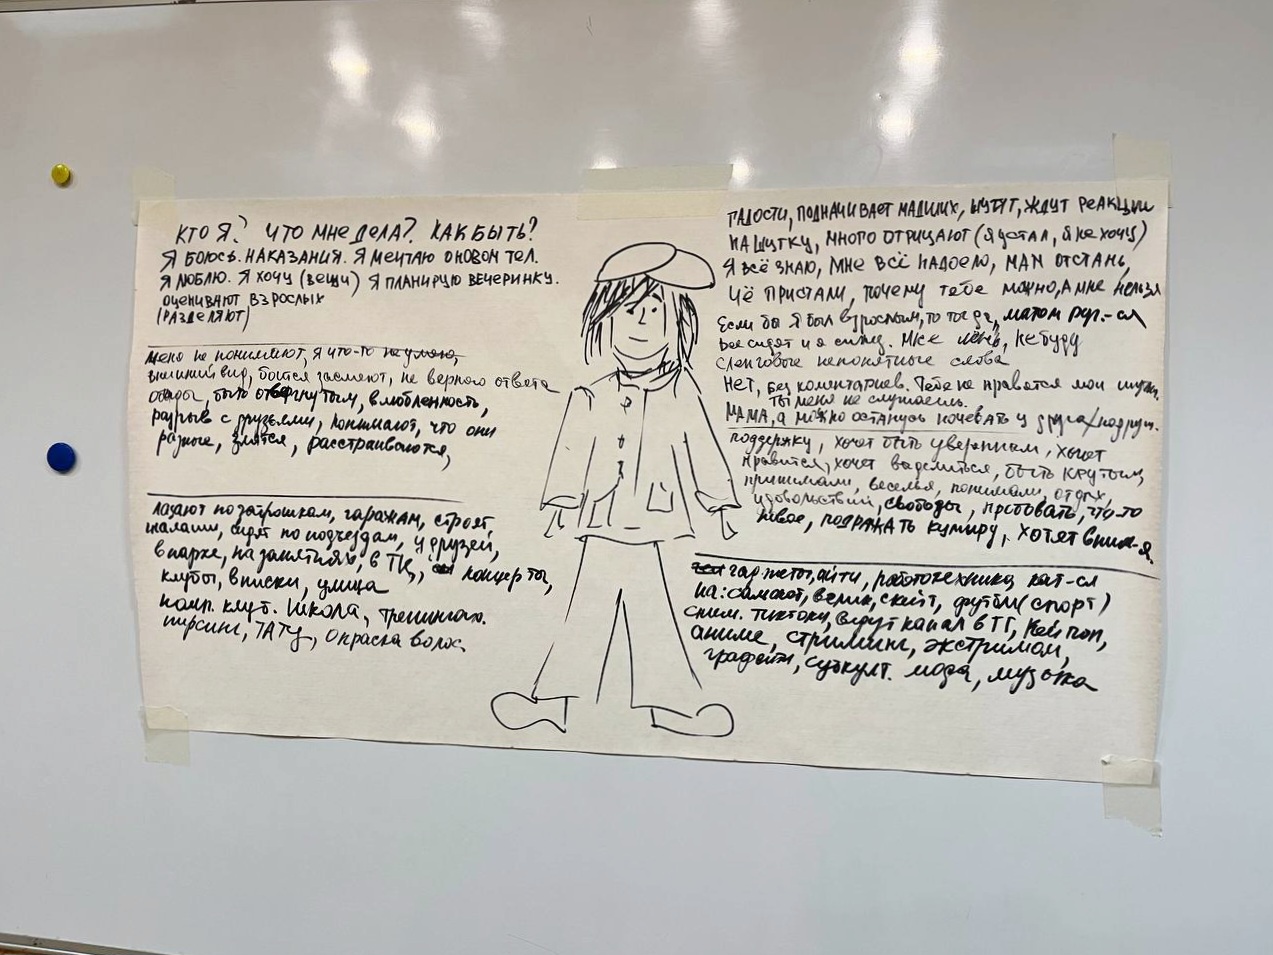 КТО Я? ЧТО МНЕ ДЕЛА? КАК БЫТЬ?
Я БОЮСЬ. НАКАЗАНИЯ. Я МЕЧТАЮ О НОВОМ ТЕЛ.
Я ЛЮБЛЮ. Я ХОЧУ (ВЕЩИ) Я ПЛАНИРУЮ ВЕЧЕРИНКУ.
ОЦЕНИВАЮТ ВЗРОСЛЫХ
(РАЗДЕЛЯЮТ)
меня не понимают, я что-то не умею,
внешний вид, боятся засмеют, не верного ответа
быть отвергнутым, влюбленность,
разрыв с друзьями, понимают, что они
разные, злятся, расстраиваются,
лазают по заброшкам, гаражам, строят
шалаши, сидят по подъездам, у друзей,
в парке, на занятиях, в ТЦ, концерты,
клубы, вписки, улица
комп. клуб. школа, тренинги.
пирсинг, ТАТУ, окраска волос
ГАДОСТИ, ПОДНАЧИВАЕТ МЛАДШИХ, ШУТЯТ, ЖДУТ РЕАКЦИИ
НА ШУТКУ, МНОГО ОТРИЦАЮТ (Я УСТАЛ, Я НЕ ХОЧУ)
Я ВСЁ ЗНАЮ, МНЕ ВСЁ НАДОЕЛО, МАМ ОТСТАНЬ,
ЧЁ ПРИСТАЛИ, ПОЧЕМУ ТЕБЕ МОЖНО, А МНЕ НЕЛЬЗЯ
Если бы Я был взрослым, то тогда, матом руг.-ся
Все сидят и я сижу. Мне лень, не буду
Сленговые непонятные слова
Нет, без коментариев. Тебе не нравятся мои шутки,
ты меня не слушаешь.
МАМА, а можно останусь ночевать у друга/подруги.
поддержку, хочет быть уверенным, хочет
нравится, хочет выделиться, быть крутым,
принимали, веселья, понимали, отдых,
удовольствий, свободы, пробовать, что-то
новое, подражать кумиру, хотят вним-я.
гаджеты, айти, робототехника кат-ся
на: самокат, велик, скейт, футбол (спорт)
сним. тиктоки, ведут канал в ТГ, кейпоп,
аниме, стриминг, экстримом,
графити, субкульт. мода, музыка